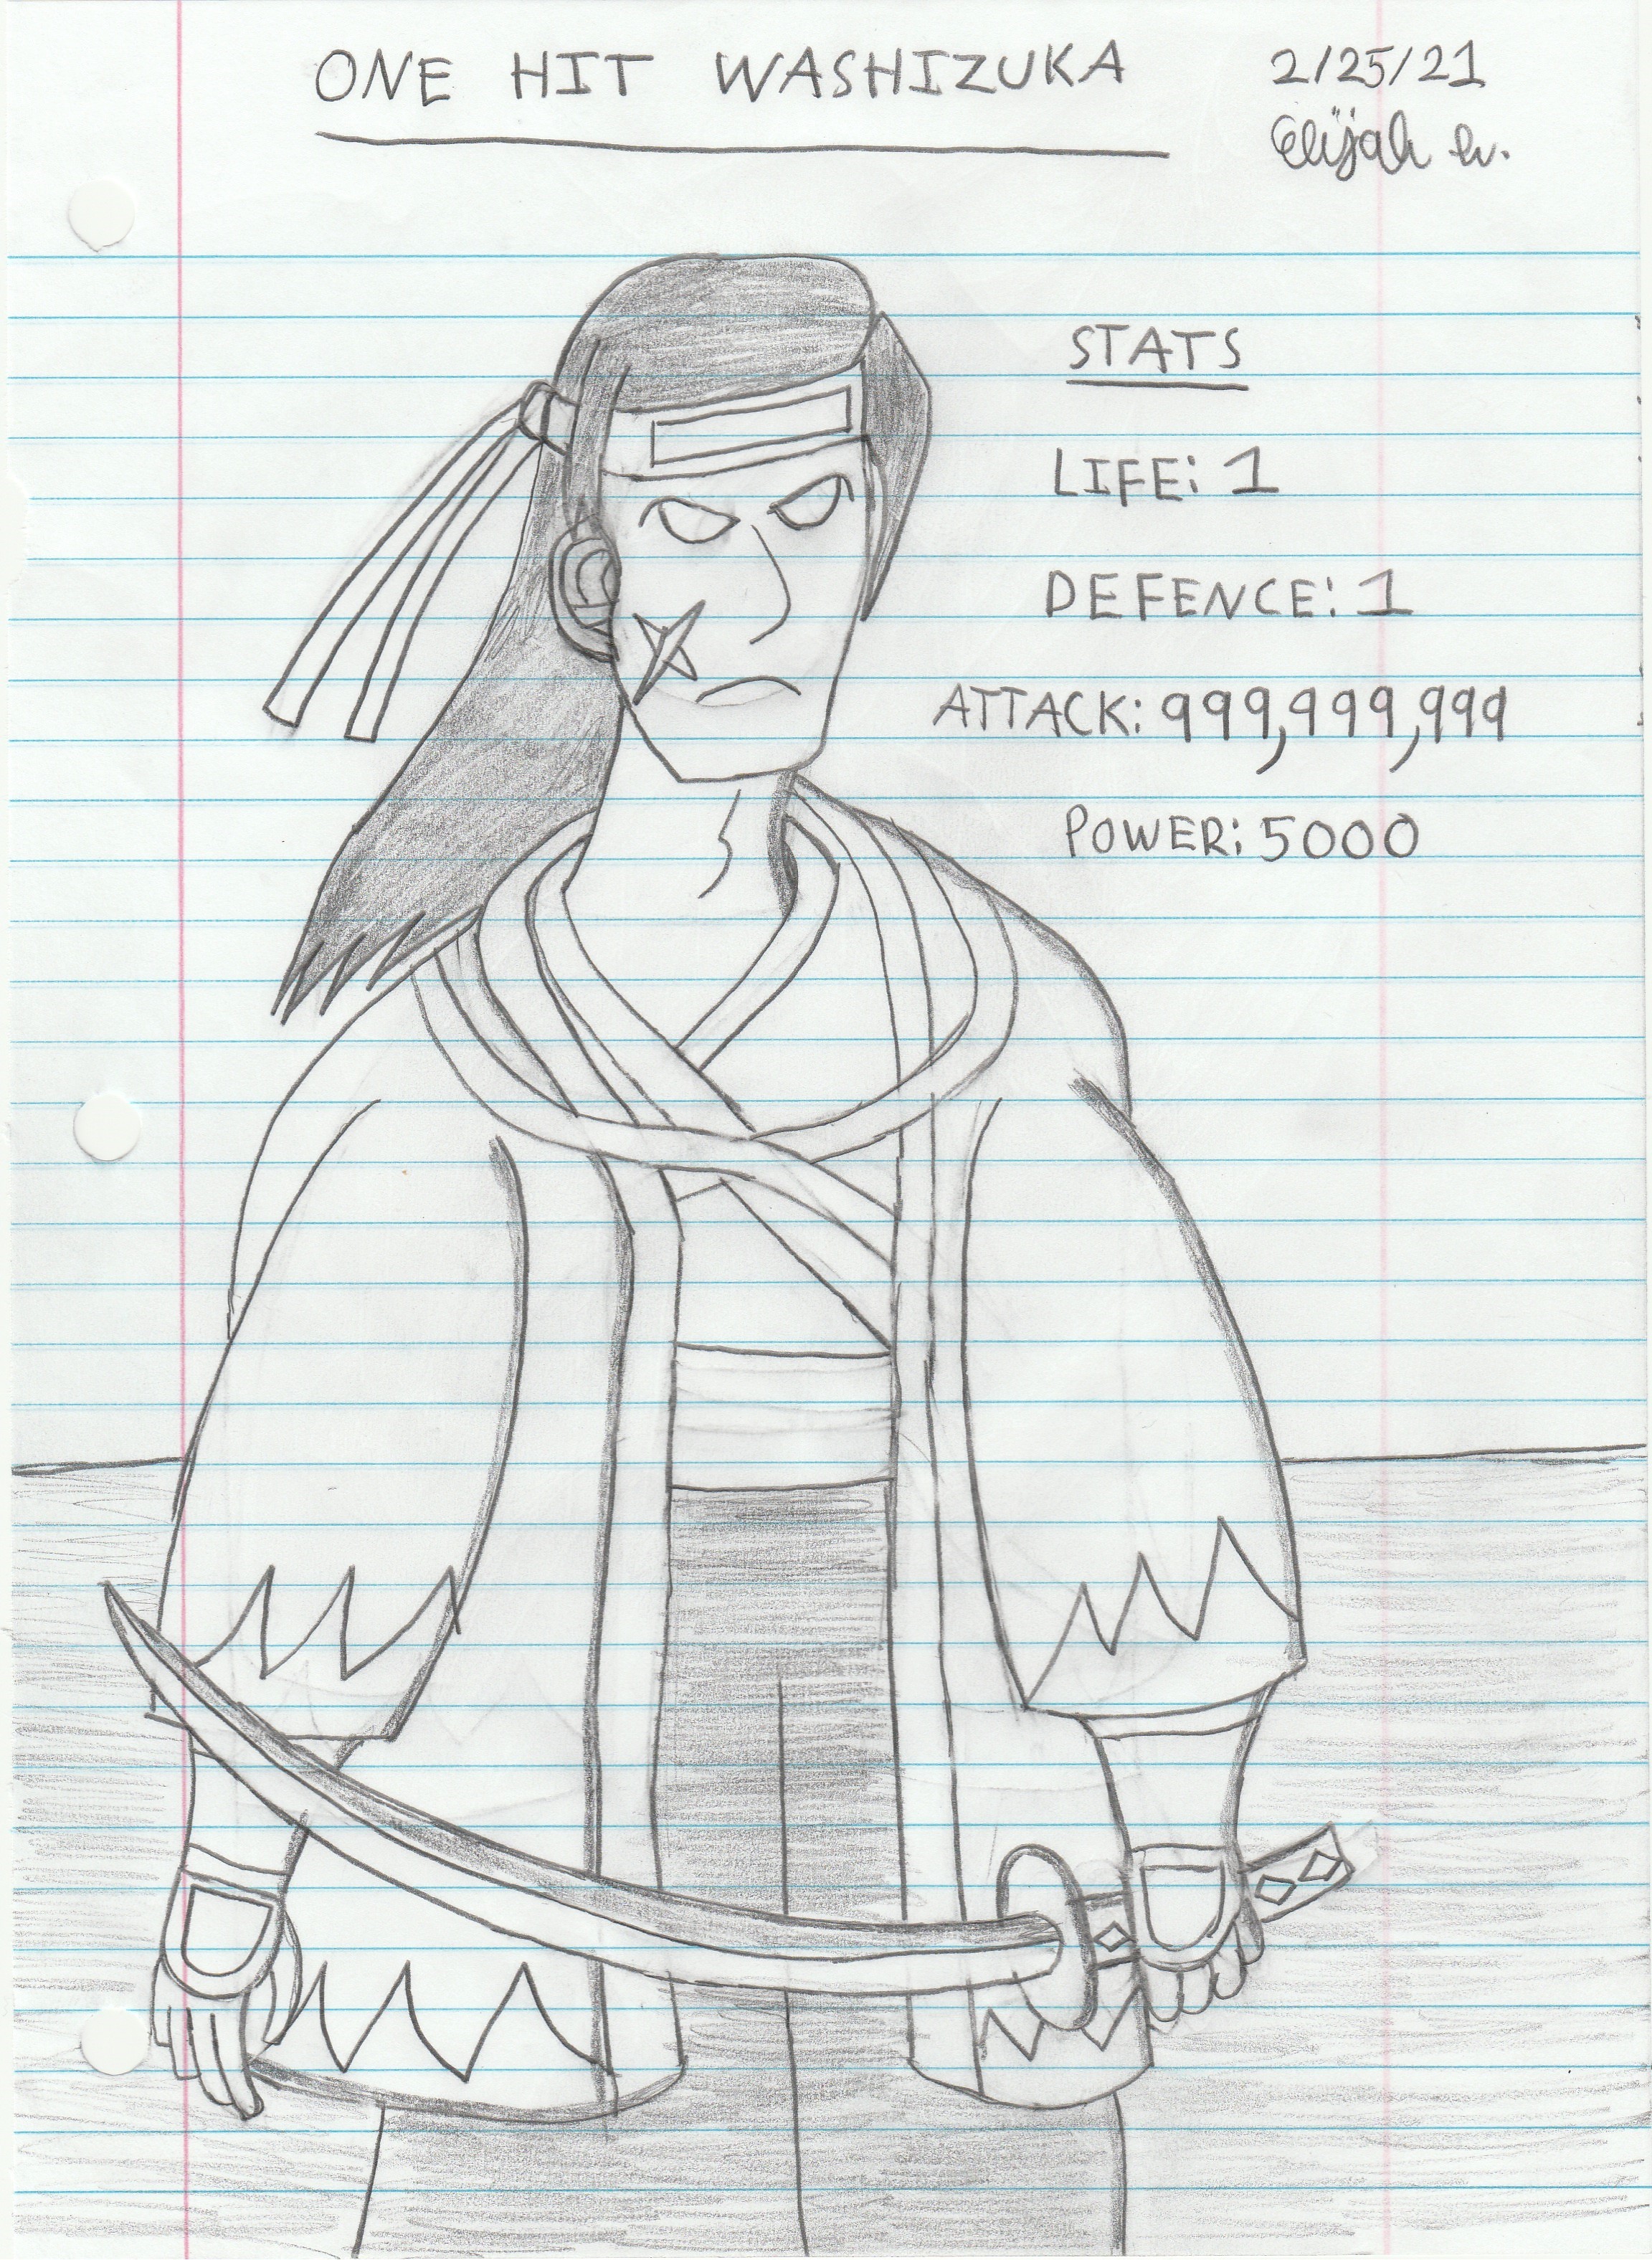 ONE HIT WASHIZUKA
2/25/21
Elijah w.
STATS
LIFE: 1
DEFENCE: 1
ATTACK: 999,999,999
POWER: 5000